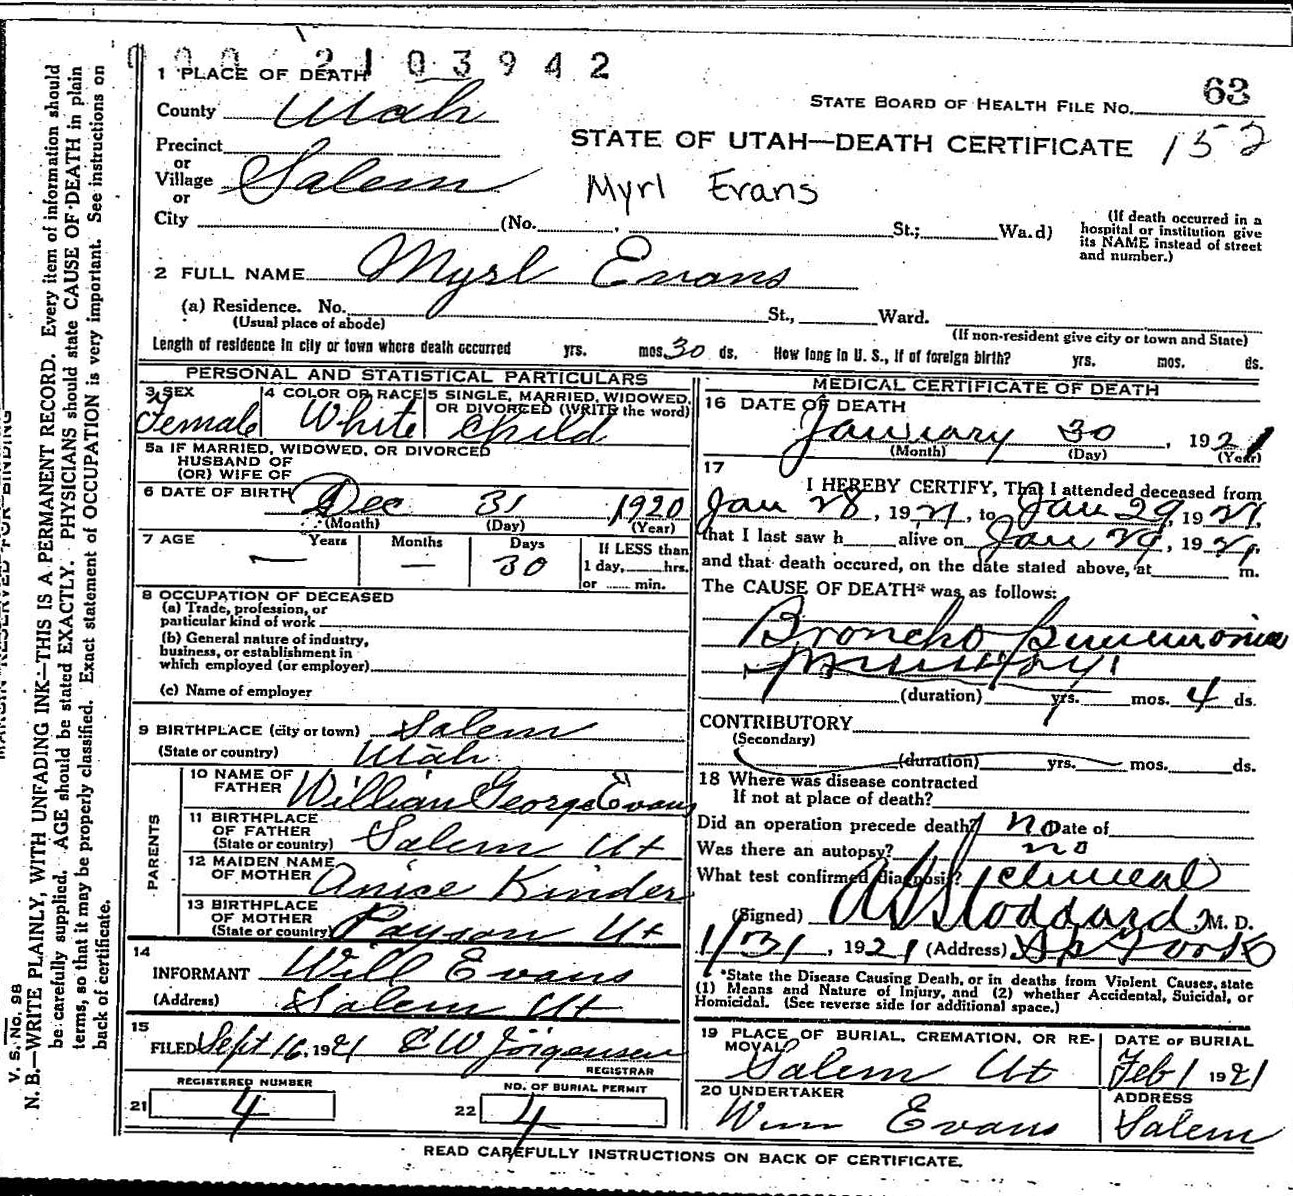 0002103942
1 PLACE OF DEATH
STATE BOARD OF HEALTH FILE NO. 63
County Utah
STATE OF UTAH—DEATH CERTIFICATE 152
Precinct
or
Village Salem
or
Myrl Evans
City (No. , St.; Wa.d)
(If death occurred in a
hospital or institution give
its NAME instead of street
and number.)
2 FULL NAME Myrl Evans
(a) Residence. No. St., Ward.
(Usual place of abode)
(If non-resident give city or town and State)
Length of residence in city or town where death occurred yrs. mos. 30 ds. How long in U. S., if of foreign birth? yrs. mos. ds.
PERSONAL AND STATISTICAL PARTICULARS
3 SEX
Female
4 COLOR OR RACE
White
5 SINGLE, MARRIED, WIDOWED,
OR DIVORCED (WRITE the word)
child
5a IF MARRIED, WIDOWED, OR DIVORCED
HUSBAND OF
(OR) WIFE OF
6 DATE OF BIRTH Dec 31 1920
(Month) (Day) (Year)
7 AGE Years Months Days
— — 30
If LESS than
1 day, hrs.
or min.
8 OCCUPATION OF DECEASED
(a) Trade, profession, or
particular kind of work
(b) General nature of industry,
business, or establishment in
which employed (or employer)
(c) Name of employer
9 BIRTHPLACE (city or town) Salem
(State or country) Utah
PARENTS
10 NAME OF
FATHER William George Evans
11 BIRTHPLACE
OF FATHER
(State or country) Salem Ut
12 MAIDEN NAME
OF MOTHER Anice Kinder
13 BIRTHPLACE
OF MOTHER
(State or country) Payson Ut
14
INFORMANT Will Evans
(Address) Salem Ut
15
FILED Sept 16, 1921 E W Jorgensen
REGISTRAR
REGISTERED NUMBER
21 4
NO. OF BURIAL PERMIT
22 4
MEDICAL CERTIFICATE OF DEATH
16 DATE OF DEATH
January 30, 1921
(Month) (Day) (Year)
17
I HEREBY CERTIFY, That I attended deceased from
Jan 28, 1921, to Jan 29, 1921,
that I last saw h alive on Jan 29, 1921.
and that death occured, on the date stated above, at m.
The CAUSE OF DEATH* was as follows:
Broncho Pneumonia
(duration) yrs. mos. 4 ds.
CONTRIBUTORY
(Secondary)
(duration) yrs. mos. ds.
18 Where was disease contracted
If not at place of death?
Did an operation precede death? no Date of
Was there an autopsy? no
What test confirmed diagnosis? clinical
(Signed) A Stoddard, M. D.
1/31, 1921 (Address) Sp Fork
*State the Disease Causing Death, or in deaths from Violent Causes, state
(1) Means and Nature of Injury, and (2) whether Accidental, Suicidal, or
Homicidal. (See reverse side for additional space.)
19 PLACE OF BURIAL, CREMATION, OR RE-
MOVAL
Salem Ut
DATE OF BURIAL
Feb 1 1921
20 UNDERTAKER
Wm Evans
ADDRESS
Salem
READ CAREFULLY INSTRUCTIONS ON BACK OF CERTIFICATE.
V. S. No. 98
N. B.—WRITE PLAINLY, WITH UNFADING INK—THIS IS A PERMANENT RECORD. Every item of information should
be carefully supplied. AGE should be stated EXACTLY. PHYSICIANS should state CAUSE OF DEATH in plain
terms, so that it may be properly classified. Exact statement of OCCUPATION is very important. See instructions on
back of certificate.
MARGIN RESERVED FOR BINDING